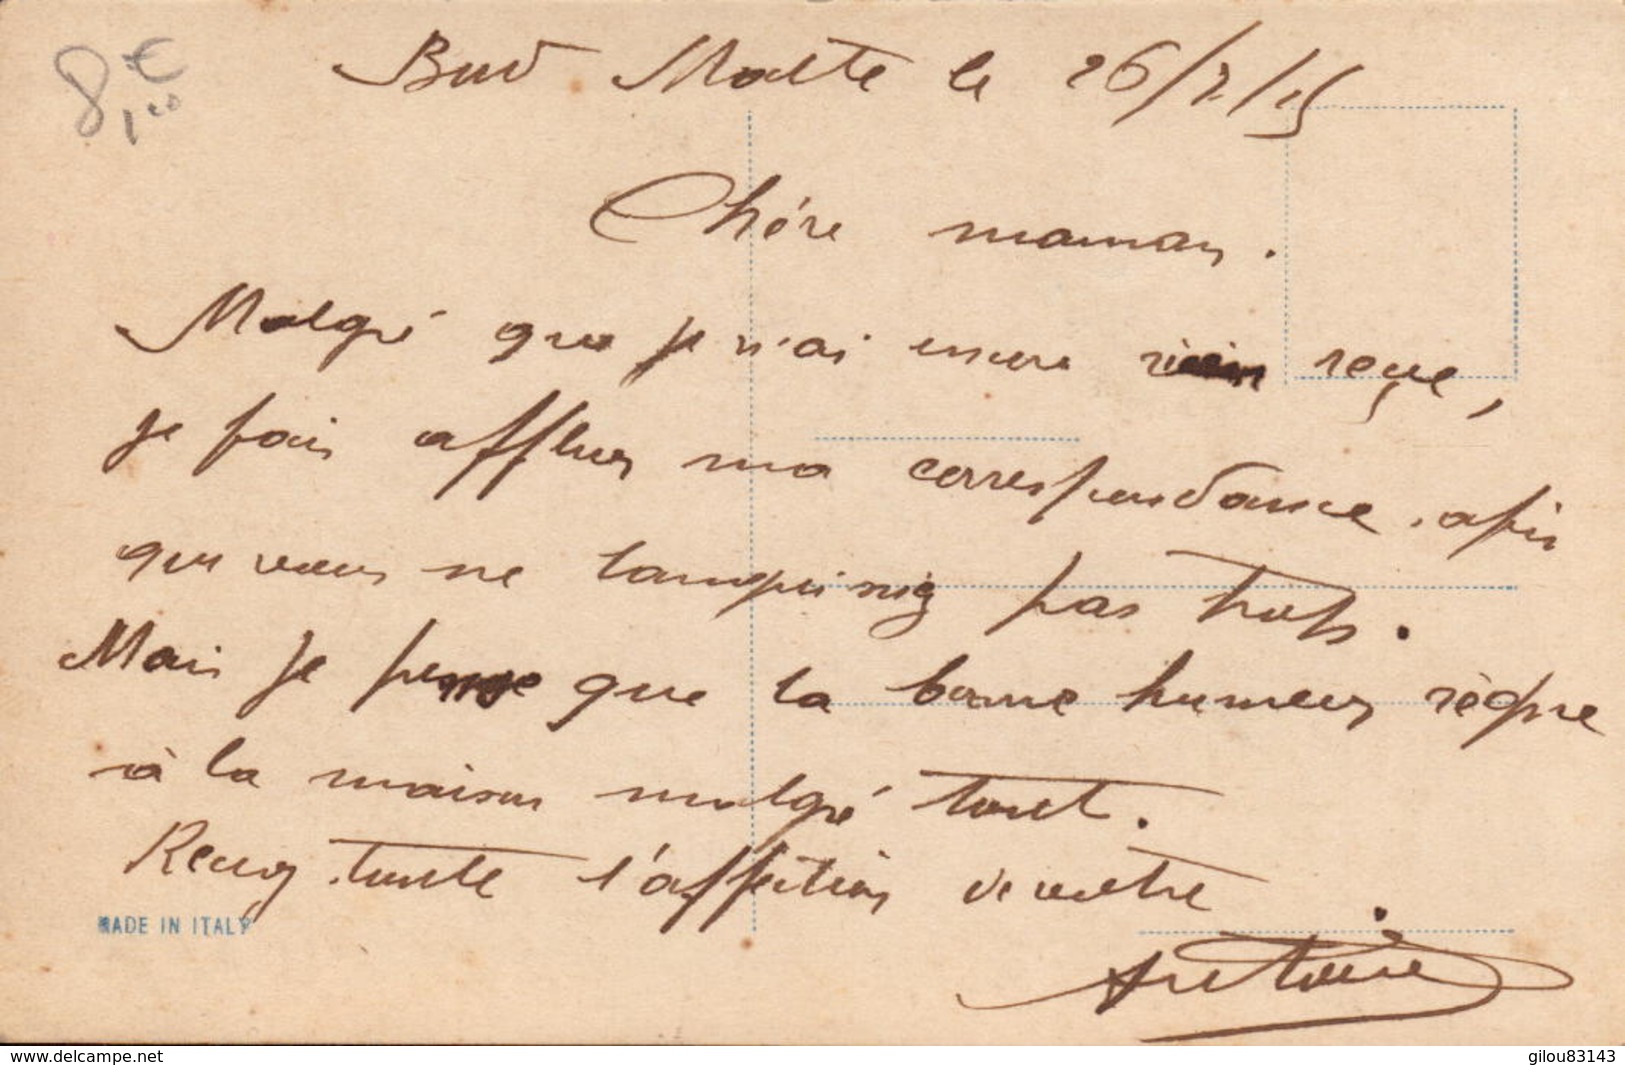 8,00 €
Malte le 26/7/15
Chére maman.
Malgré que je n'ai encore rien reçue,
je fais affluer ma correspondance, afin
que vous ne languissiez pas trop.
Mais je pense que la bonne humeur règne
à la maison malgré tout.
Recevez toute l'affection de votre
MADE IN ITALY
Antoine
www.delcampe.net
gilou83143